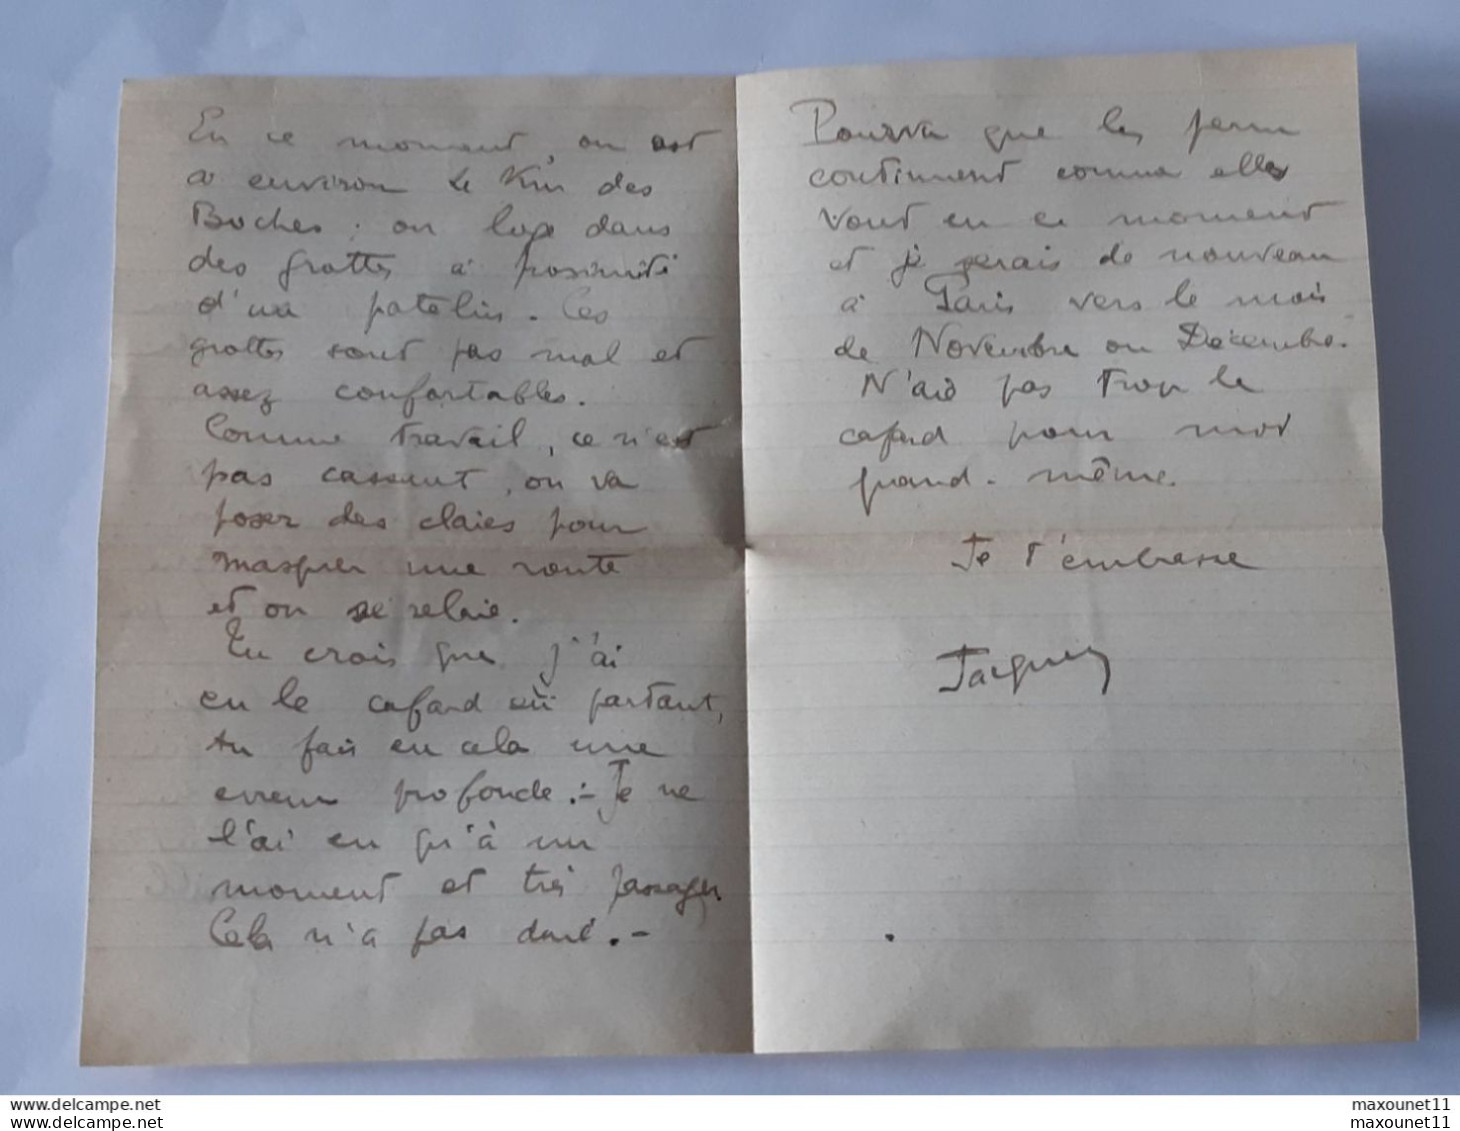 En ce moment, on est
à environ 4 Km des
Boches ; on loge dans
des grottes à proximité
d'un patelin. Ces
grottes sont pas mal et
assez confortables.
Comme travail, ce n'est
pas cassant, on va
poser des claies pour
masquer une route
et on se relaie.
Tu crois que j'ai
eu le cafard en partant,
tu fais en cela une
erreur profonde. - Je ne
l'ai eu qu'à un
moment et très passager
Cela n'a pas duré. -
Pourvu que les perm
continuent comme elles
vont en ce moment
et je serais de nouveau
à Paris vers le mois
de Novembre ou Décembre.
N'aie pas trop le
cafard pour moi
grand-mère.
Je t'embrasse
Jacques
maxounet11
maxounet11
maxounet11
maxounet11